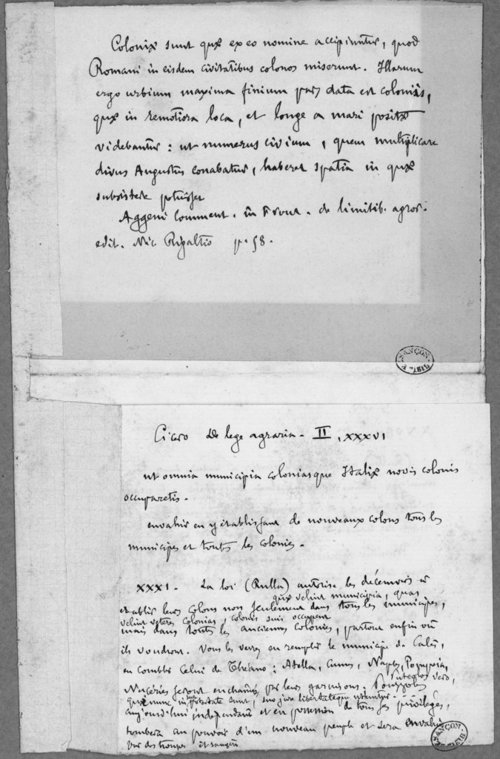 Coloniæ sunt quæ ex eo nomine accipiuntur, quod
Romani in eisdem civitatibus colonos miserunt. Harum
ergo urbium maxima finium pars data est coloniis,
quæ in remotiora loca, et longe a mari positæ
videbantur : ut numerus civium, quem multiplicare
divus Augustus conabatur, haberet spatia in quæ
subsistere potuisset
Aggeni Comment. in Front. de limitib. agror.
edit. Nic Rigaltio p. 58.
Cicero De lege agraria - II, XXXVI
ut omnia municipia coloniasque Italiæ novis colonis
occuparetis.
envahir en y établissant de nouveaux colons tous les
municipes et toutes les colonies.
XXXI. La loi (Rulla) autorise les décemvirs à
quæ velint municipia, quas
établir leurs colons non seulement dans tous les municipes,
velint veteres colonias, colonis suis occupent
mais dans toutes les anciennes colonies, partout enfin où
ils voudront. Vous les verrez en remplir le municipe de Calès,
en combler celui de Theano : Atella, Cumes, Naples, Pompeia,
Nuceries seront enchaînés par leurs garnisons. Pouzzoles
aujourd'hui indépendant et en possession de tous ses privilèges,
tombera au pouvoir d'un nouveau peuple et sera envahie
par des troupes